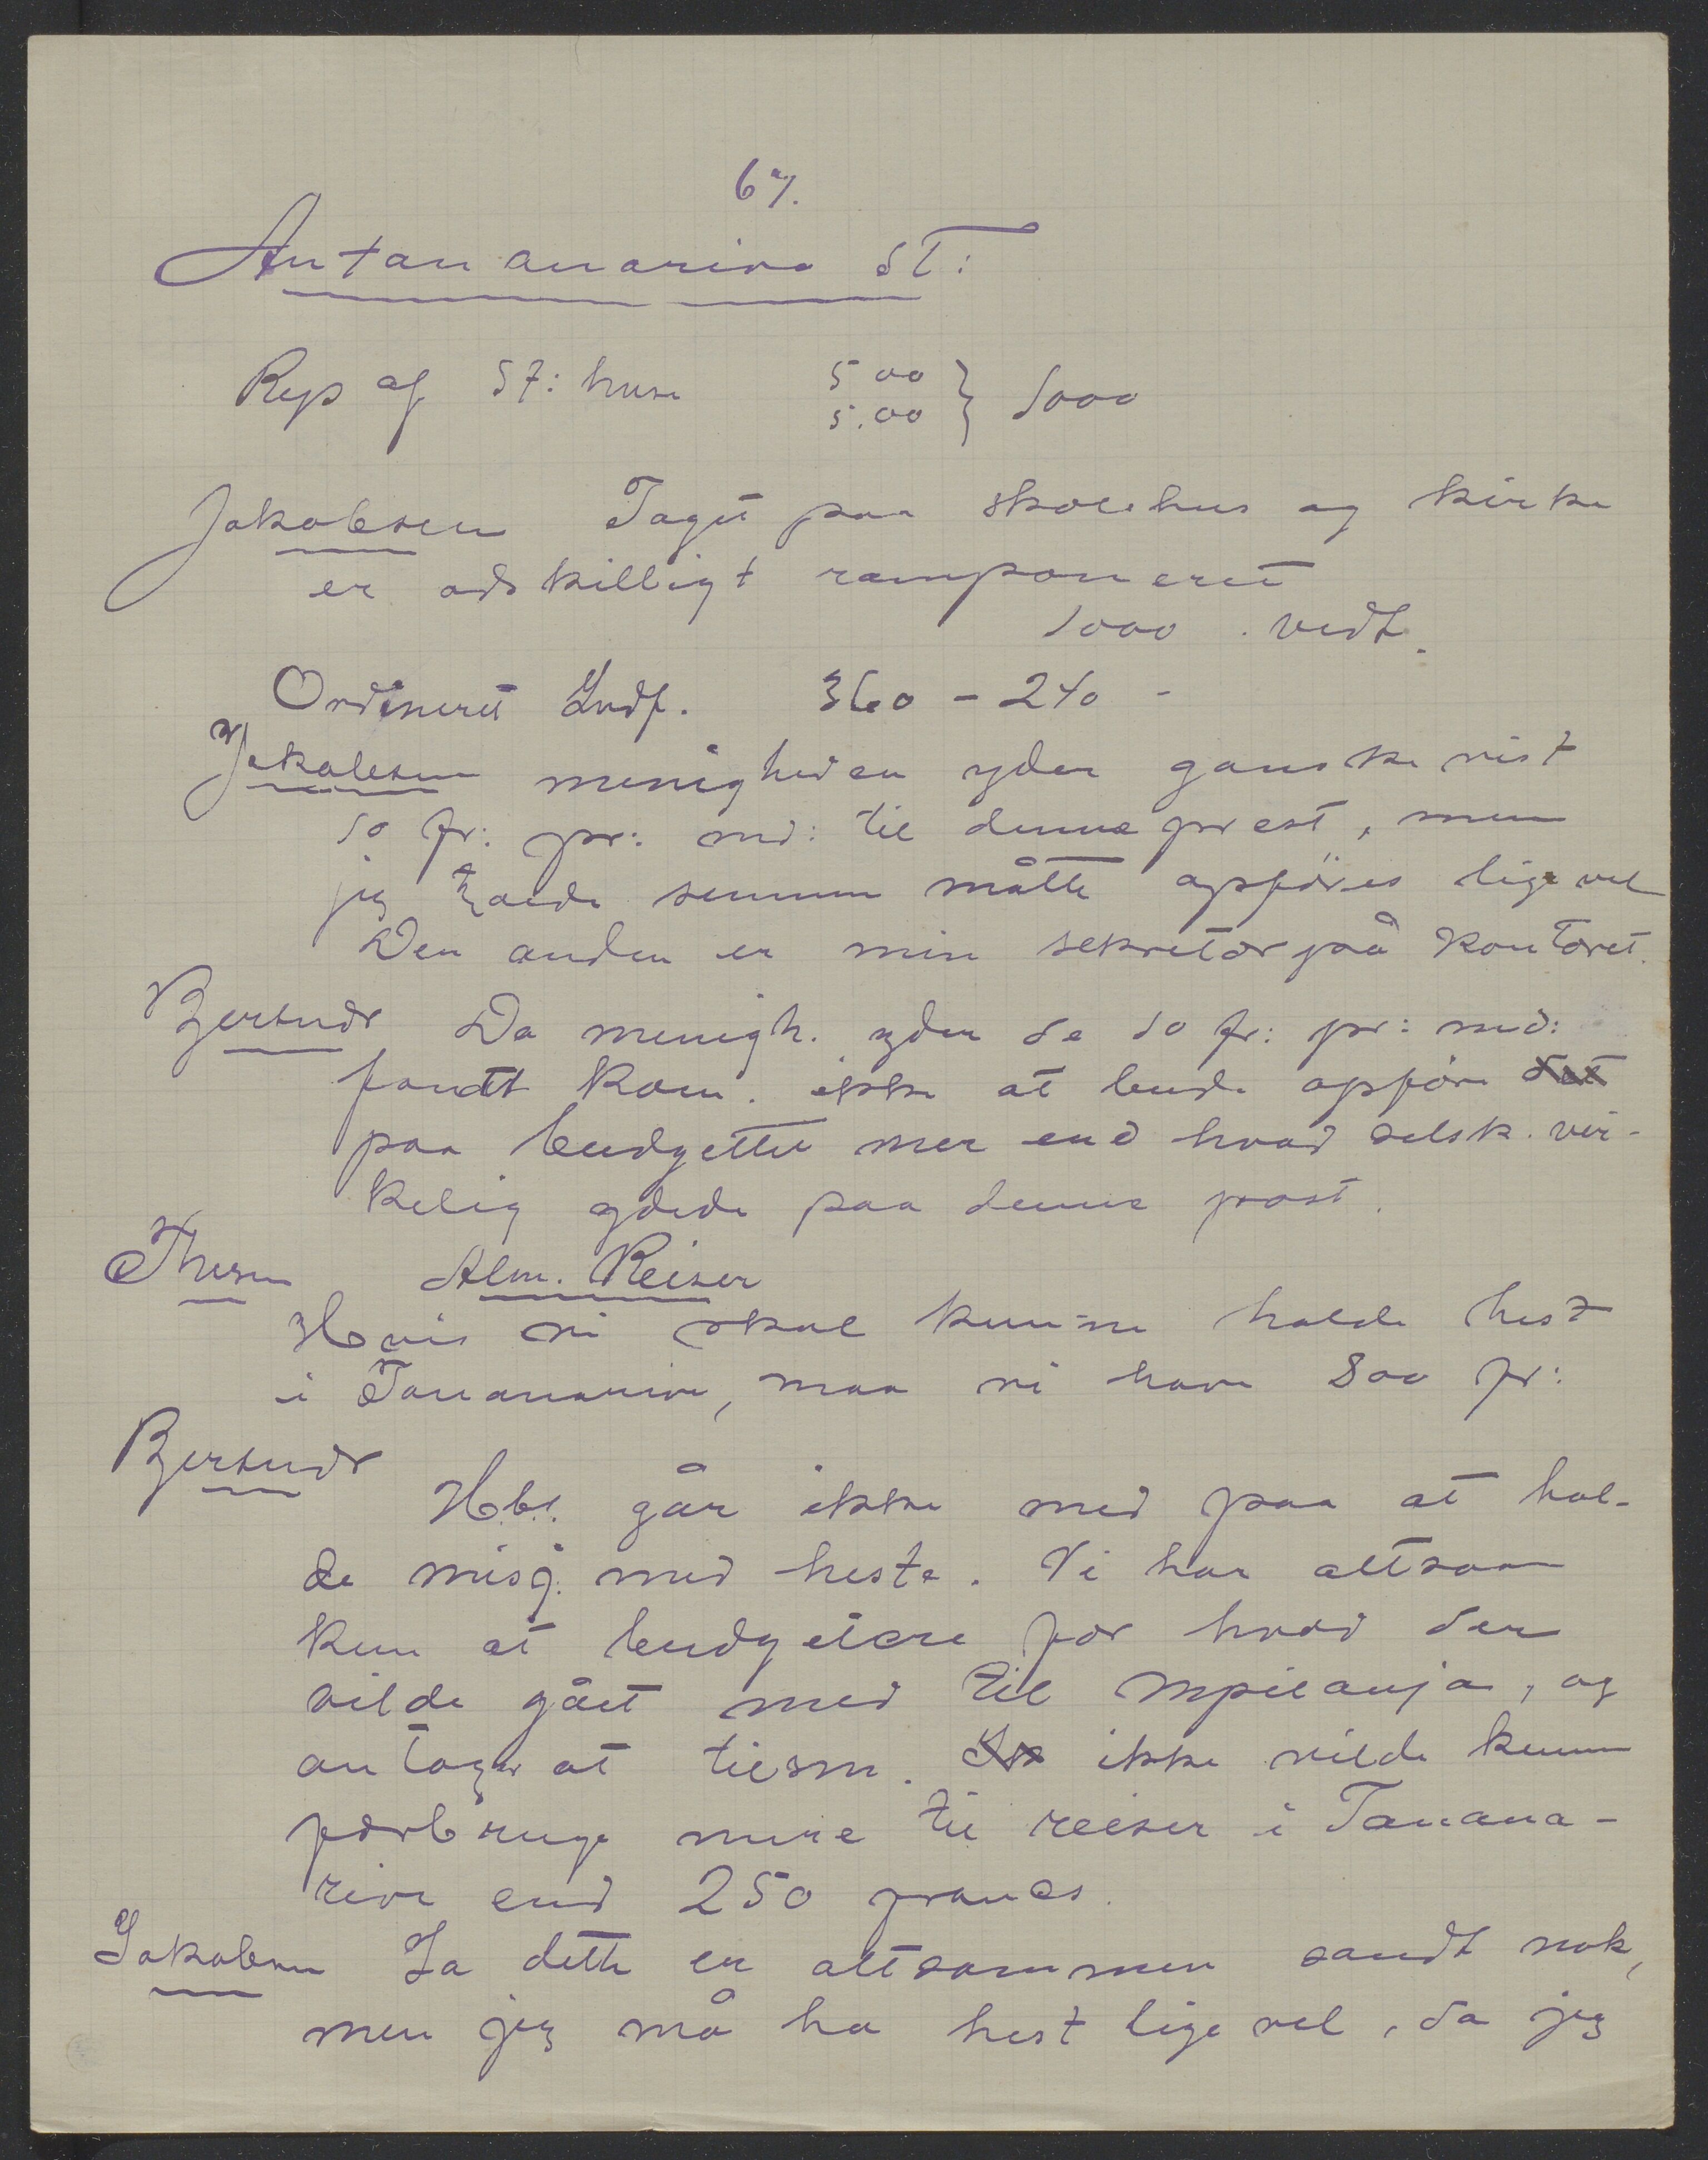 67.
Antananarivo St:
Rep af St: huse 500 } 1000
500
Jakobsen Taget paa skolehus og kirke
er adskilligt ramponeret
1000 . vedt.
Ordineret Indf. 360 - 240 -
Jakobsen menigheden yder ganske vist
10 fr: pr: md: til denne prest, men
jeg summen måtte opföres lige vel
Den anden er min sekretær på kontoret.
Bjertnæs Da menigh. yder de 10 fr: pr: md:
fandt kom. ikke at burde opföre det
paa budgettet mer end hvad selsk. vir-
kelig ydede paa denne post.
Thesen Alm. Reiser
Hvis vi skal kunne holde hest
i Tananarive, maa vi have 800 fr:
Bjertnæs
H.b.s. går ikke med paa at hol-
de misj. med heste. Vi har altsaa
kun at budgetere for hvad der
vilde gået med til mpilanja, og
antager at tilsm. ikke vilde kunne
forbruge mere til reiser i Tanana-
rive end 250 francs.
Jakobsen Ja dette er altsammen sandt nok,
men jeg må ha hest lige vel, da jeg